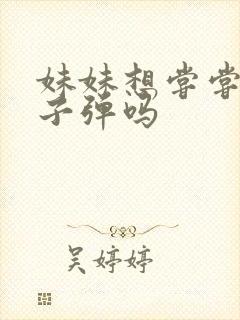 妹妹想尝尝
子弹吗
吴婷婷